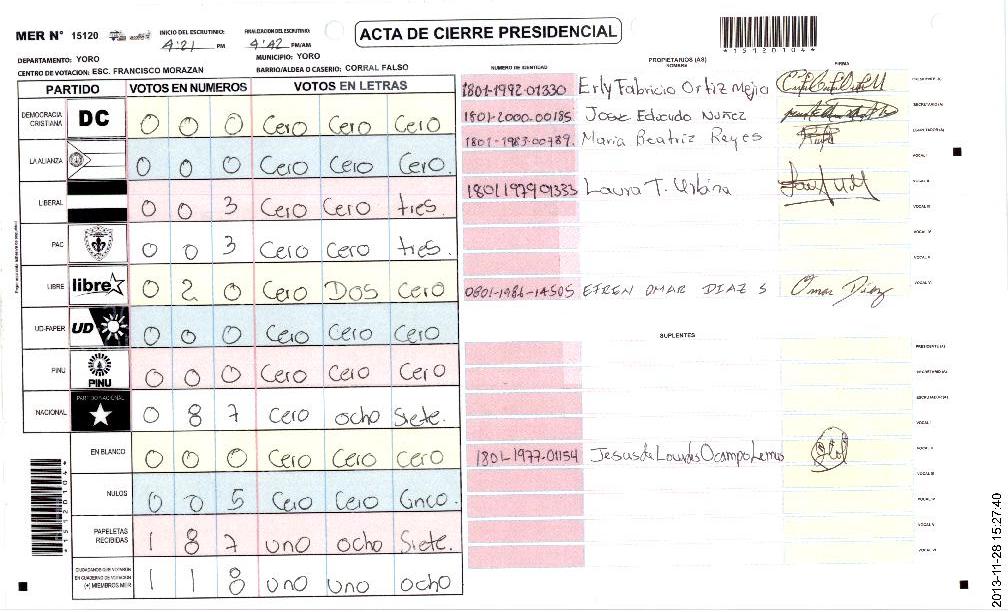 MER N° 15120
INICIO DEL ESCRUTINIO: 4:21 PM
FINALIZACION DEL ESCRUTINIO: 4:42 PM/AM
ACTA DE CIERRE PRESIDENCIAL
*15120104*
DEPARTAMENTO: YORO
MUNICIPIO: YORO
CENTRO DE VOTACION: ESC. FRANCISCO MORAZAN
BARRIO/ALDEA O CASERIO: CORRAL FALSO
PARTIDO VOTOS EN NUMEROS VOTOS EN LETRAS
DEMOCRACIA CRISTIANA DC 0 0 0 Cero Cero Cero
LA ALIANZA 0 0 0 Cero Cero Cero.
LIBERAL 0 0 3 Cero Cero tres.
PAC 0 0 3 Cero Cero tres.
LIBRE libre 0 2 0 Cero Dos Cero
UD-FAPER UD 0 0 0 Cero Cero Cero
PINU PINU 0 0 0 Cero Cero Cero
NACIONAL PARTIDO NACIONAL 0 8 7 Cero ocho Siete.
EN BLANCO 0 0 0 Cero Cero Cero
NULOS 0 0 5 Cero Cero Cinco.
PAPELETAS RECIBIDAS 1 8 7 uno ocho Siete.
CIUDADANOS QUE VOTARON EN CUADERNO DE VOTACION (+) MIEMBROS MER 1 1 8 uno uno ocho
*15120104*
PROPIETARIOS (AS)
NUMERO DE IDENTIDAD NOMBRE FIRMA
1801-1992-01330 Erly Fabricio Ortiz Mejia PRESIDENTE (A)
1801-2000-00185 Jose Edcudo Nuñez SECRETARIO (A)
1801-1983-00789. Maria Beatriz Reyes ESCRUTADOR (A)
VOCAL I
1801197901333 Laura T. Urbina VOCAL II
VOCAL III
VOCAL IV
VOCAL V
0801-1986-14505 EFREN OMAR DIAZ S Omar Diaz VOCAL VI
SUPLENTES
PRESIDENTE (A)
SECRETARIO (A)
ESCRUTADOR (A)
VOCAL I
1801-1977-01154 Jesus de Lourdes Ocampo Lemus VOCAL II
VOCAL III
VOCAL IV
VOCAL V
VOCAL VI
2013-11-28 15:27:40